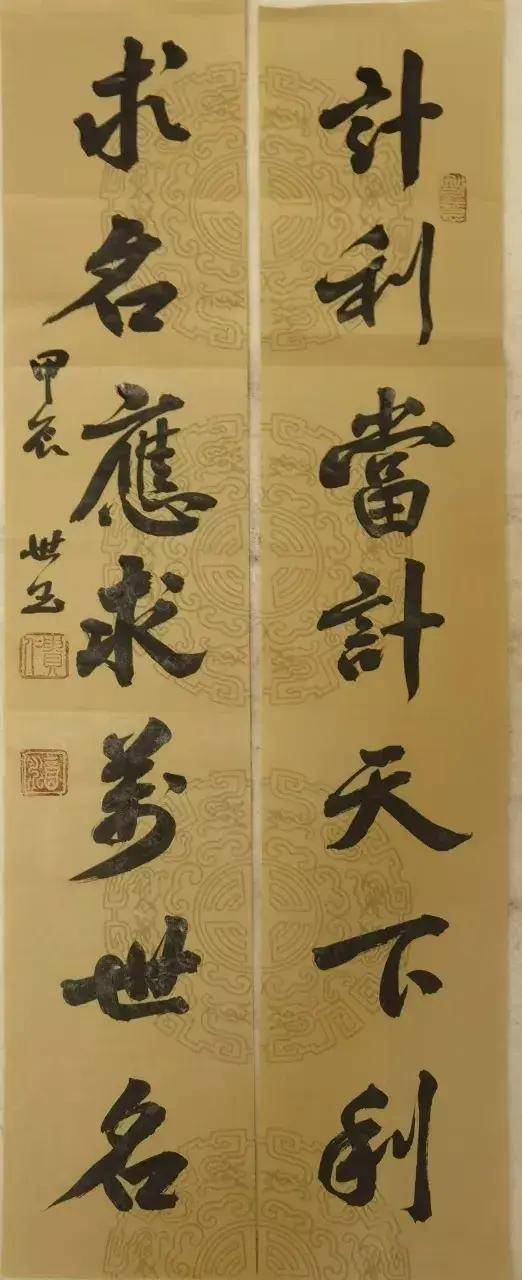 計利當計天下利
求名應求萬世名
甲辰 世玉